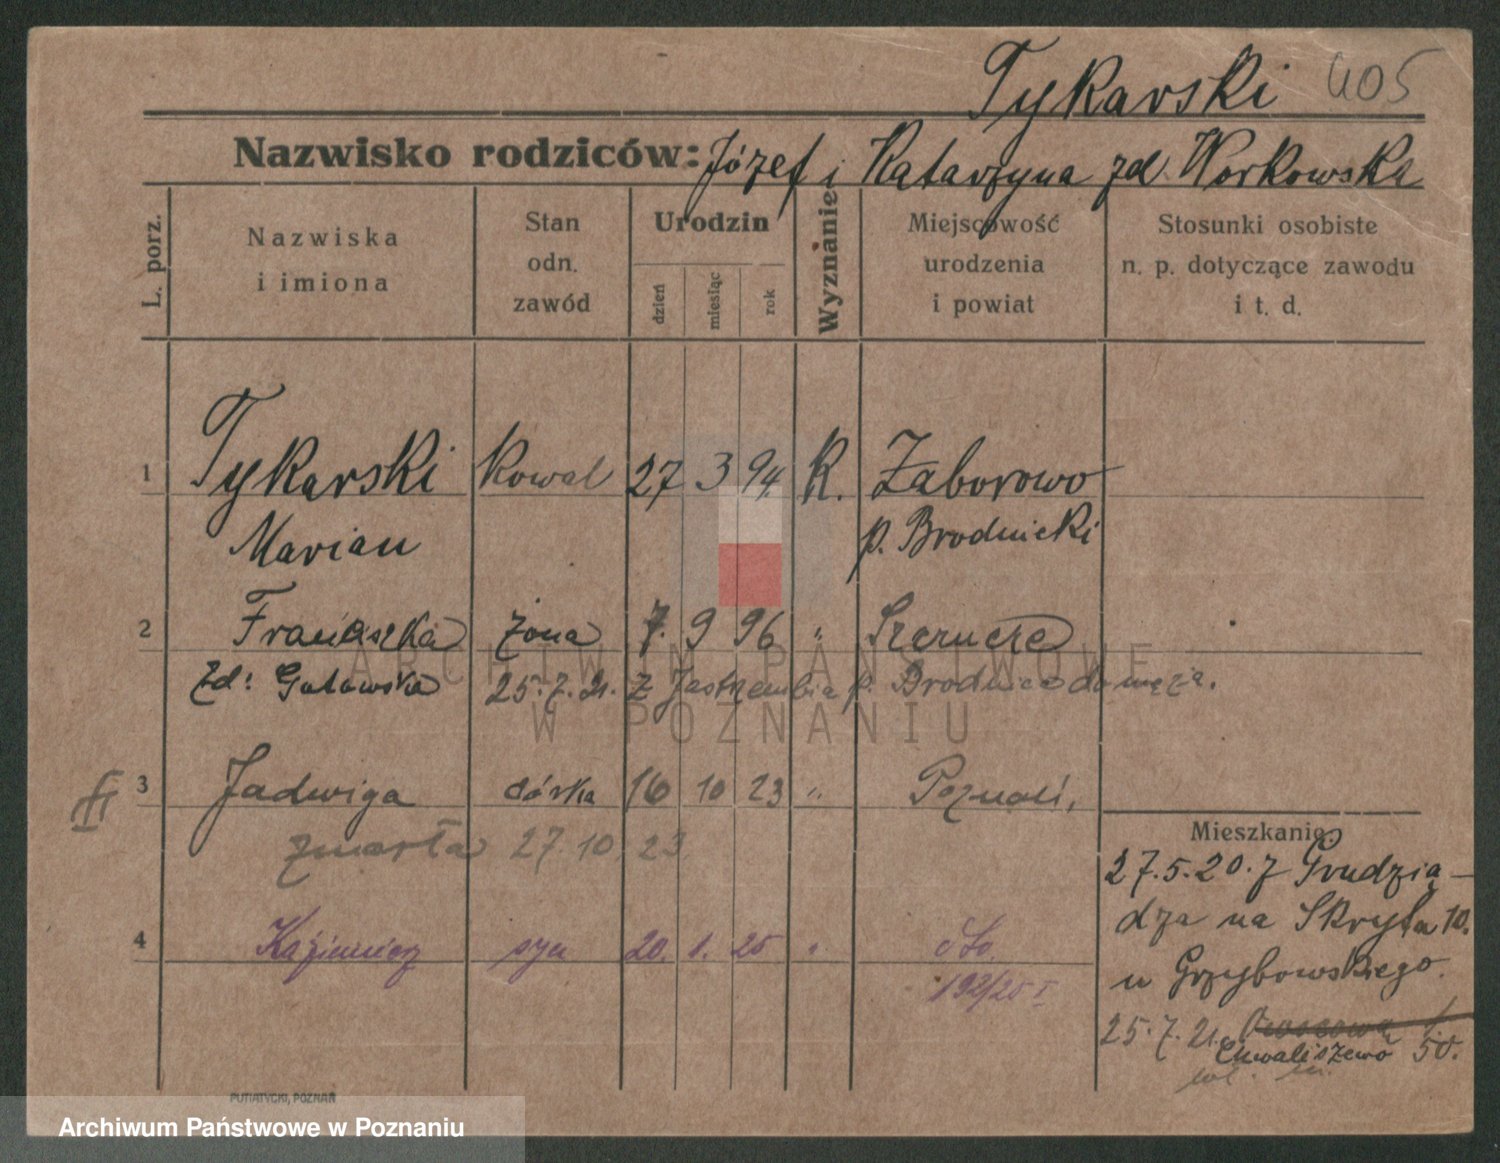 Tykarski 405
Nazwisko rodziców: Józef i Katarzyna zd. Workowska
L. porz.
Nazwiska i imiona
Stan odn. zawód
Urodzin
dzień
miesiąc
rok
Wyznanie
Miejscowość urodzenia i powiat
Stosunki osobiste n. p. dotyczące zawodu i t. d.
1 Tykarski Kowal 27 3 94. K. Zaborowo
Marian p. Brodnicki
2 Franciszka żona 7. 9 96 " Szczucze
zd: Gutowska 25.7.21. z Jastrzembia p. Brodnica do męża.
3 Jadwiga córka 16 10 23 " Poznań,
zmarła 27.10 23
4 Kaźmierz syn 20. 1. 25 "
192/25 I
Mieszkanie:
27.5.20. z Grudzią-
dza na Skryta 10.
u Grzybowskiego.
25.7.21.
Chwaliszewo 50.
PUTIATYCKI, POZNAŃ
ARCHIWUM PAŃSTWOWE
W POZNANIU
Archiwum Państwowe w Poznaniu